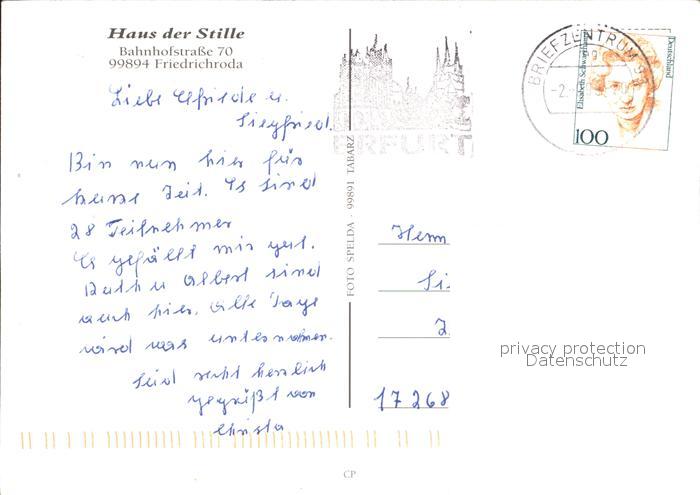 Haus der Stille
Bahnhofstraße 70
99894 Friedrichroda
Liebe Elfriede u.
Siegfried.
Bin nun hier für
kurze Zeit. Es sind
28 Teilnehmer
Es gefällt mir gut.
Ruth u Albert sind
auch hier. Alle Tage
wird was unternohmen.
Seid recht herzlich
gegrüßt von
Christa
FOTO SPELDA · 99891 TABARZ
ERFURT
BRIEFZENTRUM 99
Elisabeth Schwarzhaupt
Deutschland
100
Herrn
Si
17268
privacy protection
Datenschutz
CP